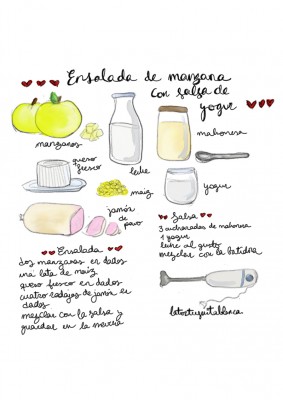 Ensalada de manzana
con salsa de
yogur
manzanas
queso
fresco
leche
mahonesa
maíz
yogur
jamón
de
pavo
Salsa
3 cucharadas de mahonesa
1 yogur
leche al gusto
mezclar con la batidora
Ensalada
dos manzanas en dados
una lata de maíz
queso fresco en dados
cuatro rodajas de jamón en
dados
mezclar con la salsa y
guardar en la nevera
latortuguitablanca